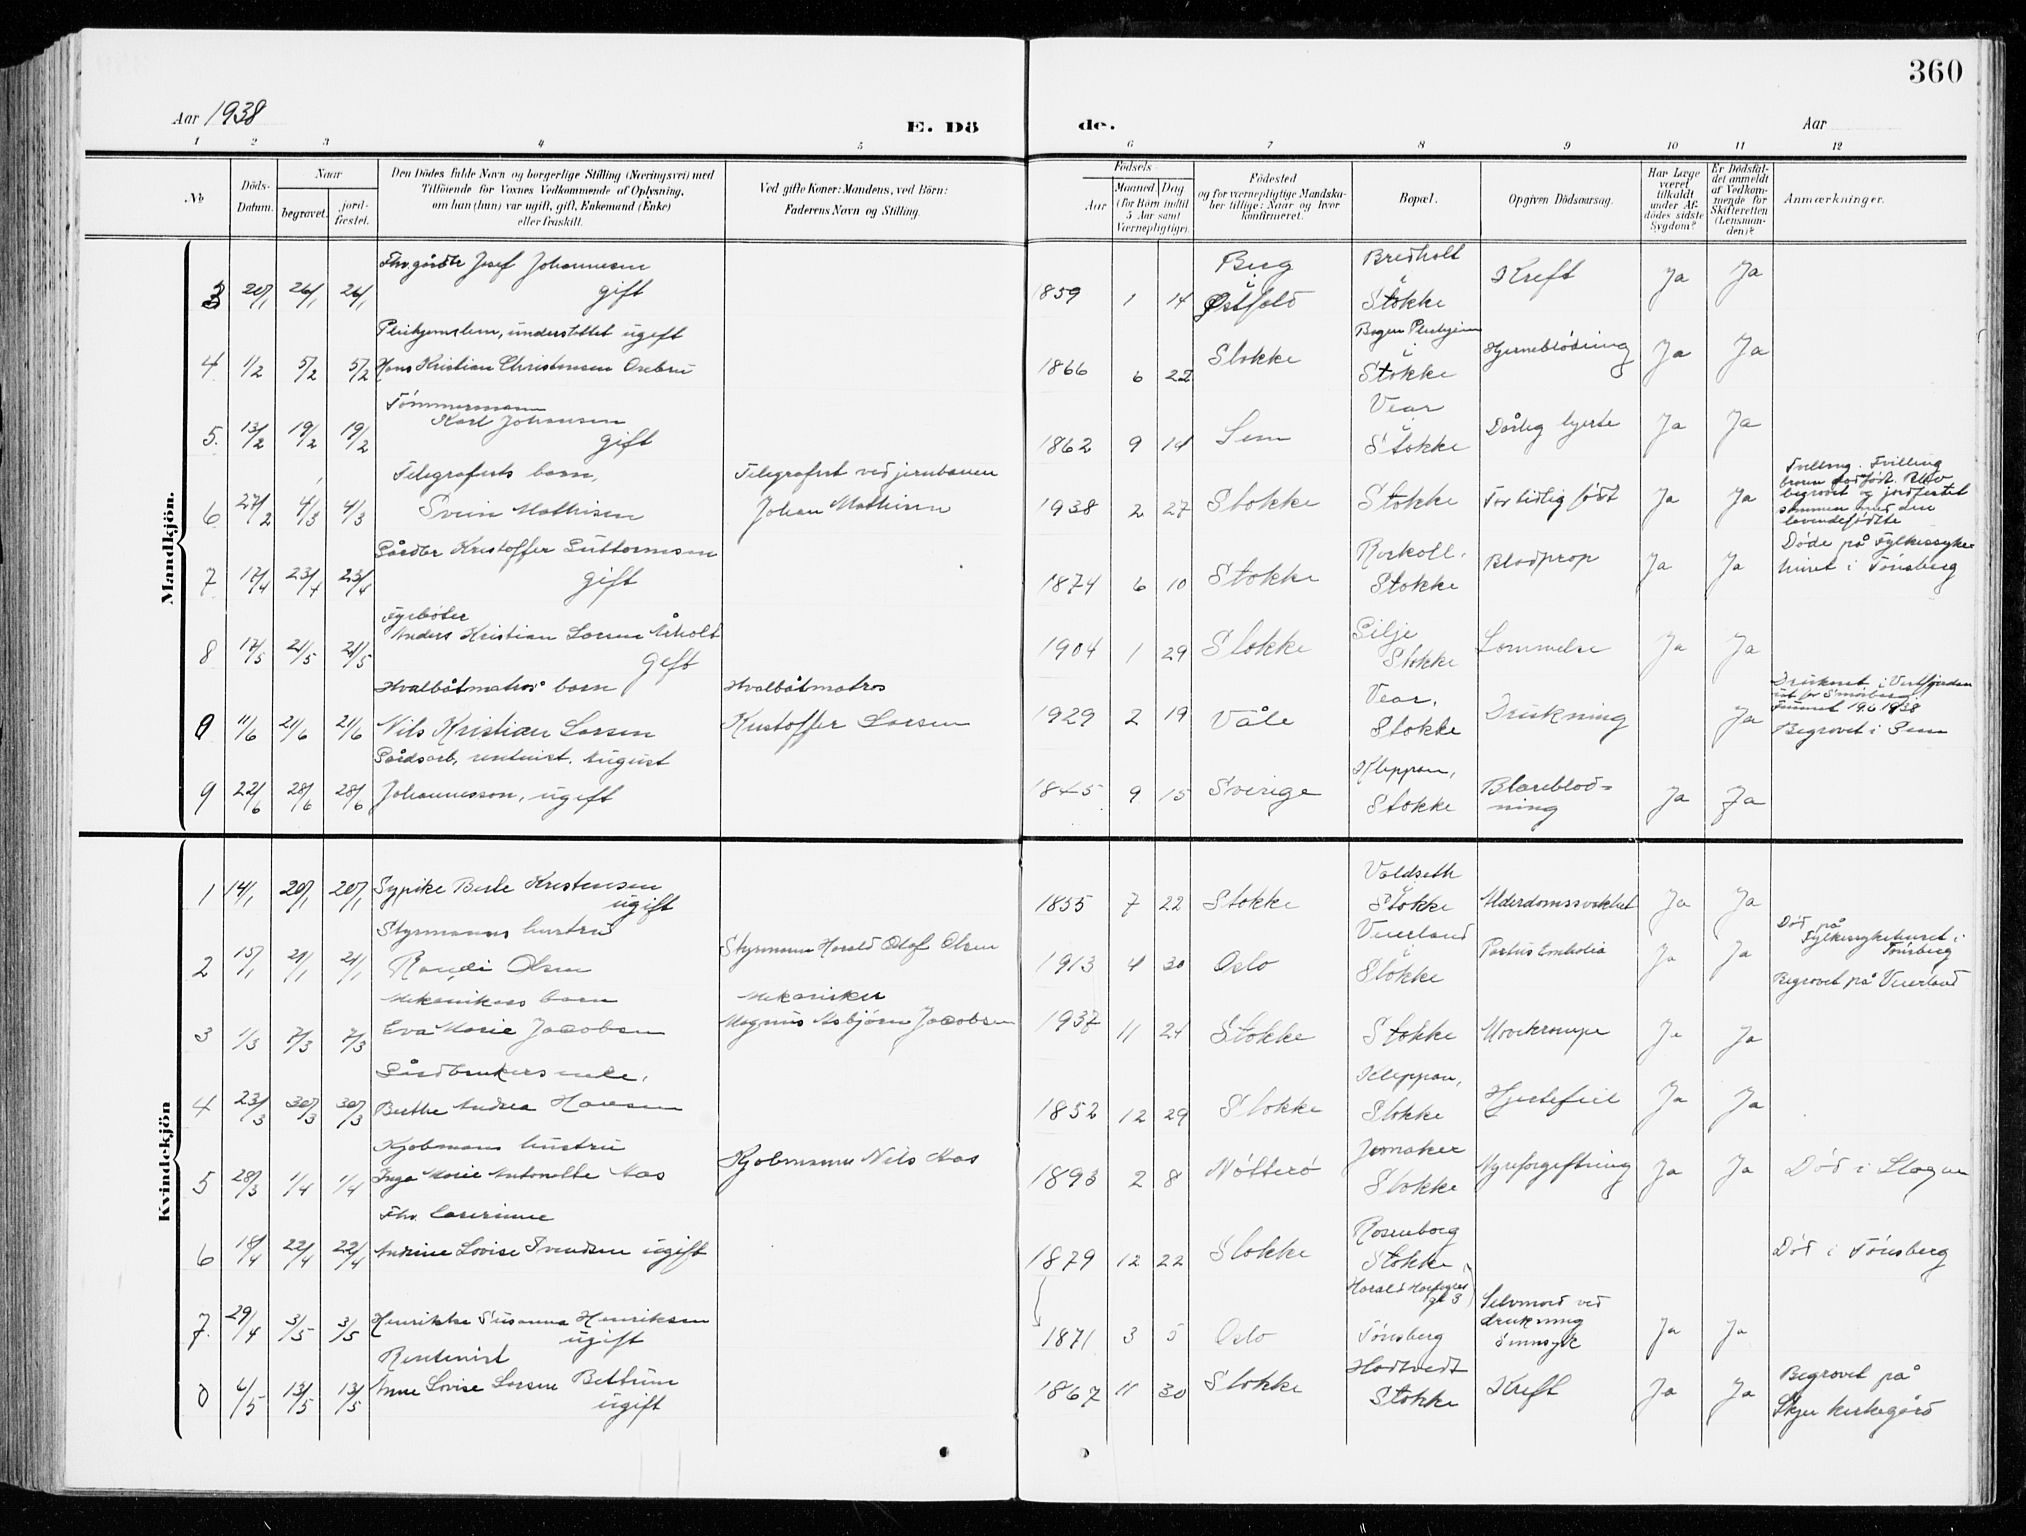 360
Aar 1938
E. Dö
de.
Aar
1 2 3 4 5 6 7 8 9 10 11 12
No
Döds-Datum.
Naar
begravet.
jord-fæstet.
Den Dödes fulde Navn og borgerlige Stilling (Næringsvei) med
Tilföiende for Voxnes Vedkommende af Oplysning,
om han (hun) var ugift, gift, Enkemand (Enke)
eller fraskilt.
Ved gifte Koner: Mandens, ved Börn:
Faderens Navn og Stilling.
Födsels
Aar
Maaned Dag
(for Börn indtil
5 Aar samt
Værnepligtige).
Födested
og for værnepligtige Mandska-
ber tillige: Naar og hvor
konfirmeret.
Bopæl.
Opgiven Dödsaarsag.
Har Læge
været
tilkaldt
under Af-
dödes sidste
Sygdom?
Er Dødsfal-
det anmeldt
af Vedkom-
mende for
Skifteretten
(Lensman-
den)?
Anmærkninger.
Mandkjön.
Fhv. gårdbr Josef Johannesen
3 20/1 26/1 26/1 gift 1859 1 14 Berg i Østfold Bredholt i Stokke Kreft Ja Ja
Pleiehjemslem, understøttet ugift
4 1/2 5/2 5/2 Hans Kristian Christensen Orebru 1866 6 22 Stokke Bogen Pleiehjem i Stokke Hjerneblödning Ja Ja
Tömmermann
Karl Johansen
5. 13/2 19/2 19/2 gift 1862 9 14 Sem Vear i Stokke Dårlig hjerte Ja Ja
Telegrafists barn, Telegrafist ved jernbanen
6 27/2 4/3 4/3 Svein Mathisen Johan Mathisen 1938 2 27 Stokke Stokke For tidlig født Ja Ja
Tvilling. Tvilling
broren dødfödt. Blev
begravet og jordfestet
sammen med den
levendefödte
Gårdbr Kristoffer Guttormsen
7 17/4 23/4 23/4 gift 1874 6 10 Stokke Stokke Blodprop Ja Ja
Døde på Fylkessyke-
huset i Tönsberg
Fyrböter
Anders Kristian Larsen Årholt
8 17/5 21/5 21/5 gift 1904 1 29 Stokke Gilje Stokke Ja Ja
Hvalbåtmatros' barn Hvalbåtmatros
11/6 21/6 21/6 Nils Kristian Larsen Kristoffer Larsen 1929 2 19 Våle Vear, Stokke Drukning Ja
Druknet i Vestfjorden
ut for Smørberg.
Funnet 19.6.1938
Begravet i Sem
Gårdsarb, rentenist. August
9 22/6 28/6 28/6 Johannesson, ugift 1845 9 15 Sverige Kleppan, Stokke Blæreblød=ning Ja Ja
Kvindekjön
1 14/1 20/1 20/1 Sypike Berte Kristensen
ugift 1855 7 22 Stokke Valdseth i Stokke Alderdomssvakhet Ja Ja
Styrmanns hustru
2 15/1 21/1 21/1 Randi Olsen Styrmann Harald Olaf Olsen 1913 4 30 Oslo Veierland i Stokke Partus Embolia Ja Ja
Död på
Fylkessykehuset i
Tönsberg
Begravet på Veierland
Mekanikers barn Mekaniker
3 1/3 7/3 7/3 Eva Marie Jacobsen Magnus Asbjörn Jacobsen 1937 11 24 Stokke Stokke Ja Ja
Gårdbrukers enke,
4 23/3 30/3 30/3 Berthe Andrea Hansen 1852 12 29 Stokke Kleppan, Stokke Hjertefeil Ja Ja
Kjöbmans hustru
5 28/3 1/4 1/4 Inga Marie Antonette Aas Kjöbmann Nils Aas 1893 2 8 Nötterö Jernaker Stokke Nyreforgiftning Ja Ja Död i Slagen
Fhv. lærerinne
6 18/4 22/4 22/4 Andrine Lovise Svendsen ugift 1879 12 22 Stokke Rosenborg Stokke Död i Tönsberg
7. 29/4 3/5 3/5 Henrikke Susanna Henriksen
ugift 1871 3 5 Oslo Harald Hårfagres gt 3 Tönsberg Selvmord ved drukning sinnsyk Ja Ja
Rentenist
8 6/5 13/5 13/5 Anne Lovise Larsen Bettum
ugift 1867 11 30 Stokke Hartvedt Stokke Kreft Ja Ja
Begravet på
Skjee kirkegård